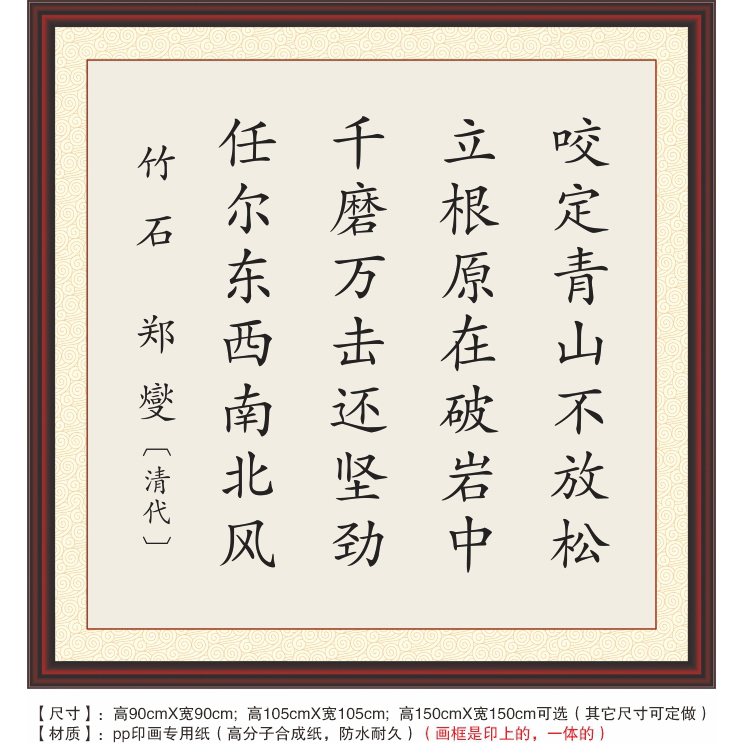 咬定青山不放松
立根原在破岩中
千磨万击还坚劲
任尔东西南北风
竹石 郑燮〔清代〕
【尺寸】：高90cmX宽90cm; 高105cmX宽105cm; 高150cmX宽150cm可选（其它尺寸可定做）
【材质】：pp印画专用纸（高分子合成纸，防水耐久）（画框是印上的，一体的）